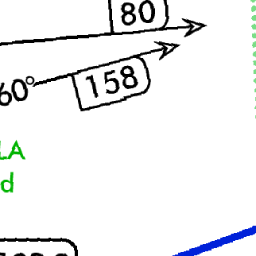 80
60°
158
LA
d